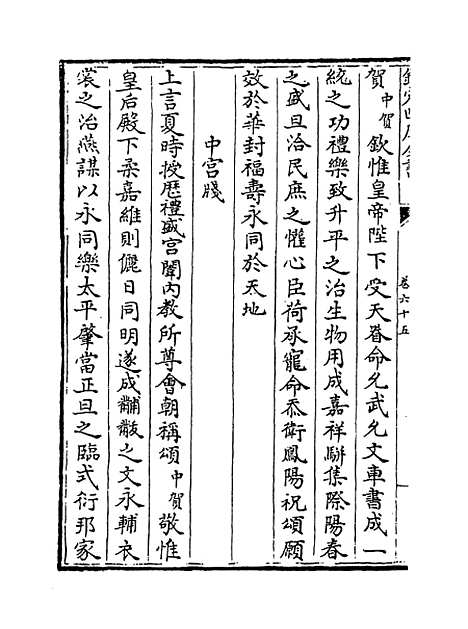 欽定四庫全書
卷六十五
賀中賀欽惟皇帝陛下受天眷命允武允文車書成一
統之功禮樂致升平之治生物用成嘉祥駢集際陽春
之盛旦洽民庶之懽心臣荷承寵命忝衛鳳陽祝頌願
效於華封福壽永同於天地
中宮牋
上言夏時授歷禮盛宮闈內教所尊會朝稱頌中賀敬惟
皇后殿下柔嘉維則儷日同明遂成黼黻之文永輔衣
裳之治燕謀以永同樂太平肇當正旦之臨式衍邦家